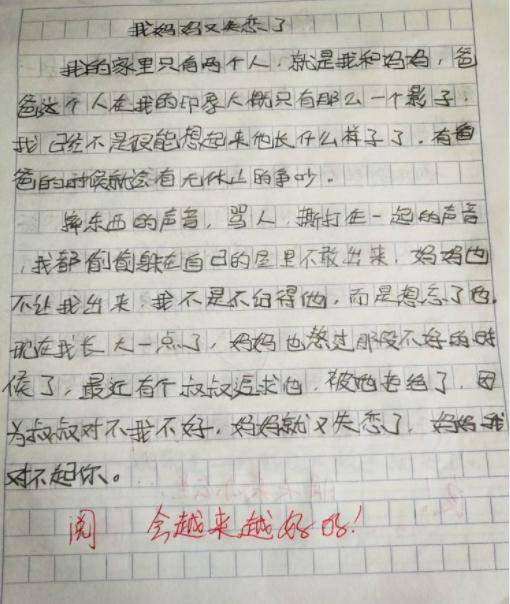 我妈妈又失恋了
我的家里只有两个人，就是我和妈妈，爸
爸这个人在我的印象大概只有那么一个影子，
我已经不是很能想起来他长什么样子了，有爸
爸的时候就会有无休止的争吵。
摔东西的声音，骂人，撕打在一起的声音
，我都偷偷躲在自己的屋里不敢出来，妈妈也
不让我出来，我不是不记得他，而是想忘了他，
现在我长大一点了，妈妈也熬过那段不好的时
候了，最近有个叔叔追求她，被她拒绝了，因
为叔叔对不我不好，妈妈就又失恋了，妈妈我
对不起你。
阅 会越来越好的！